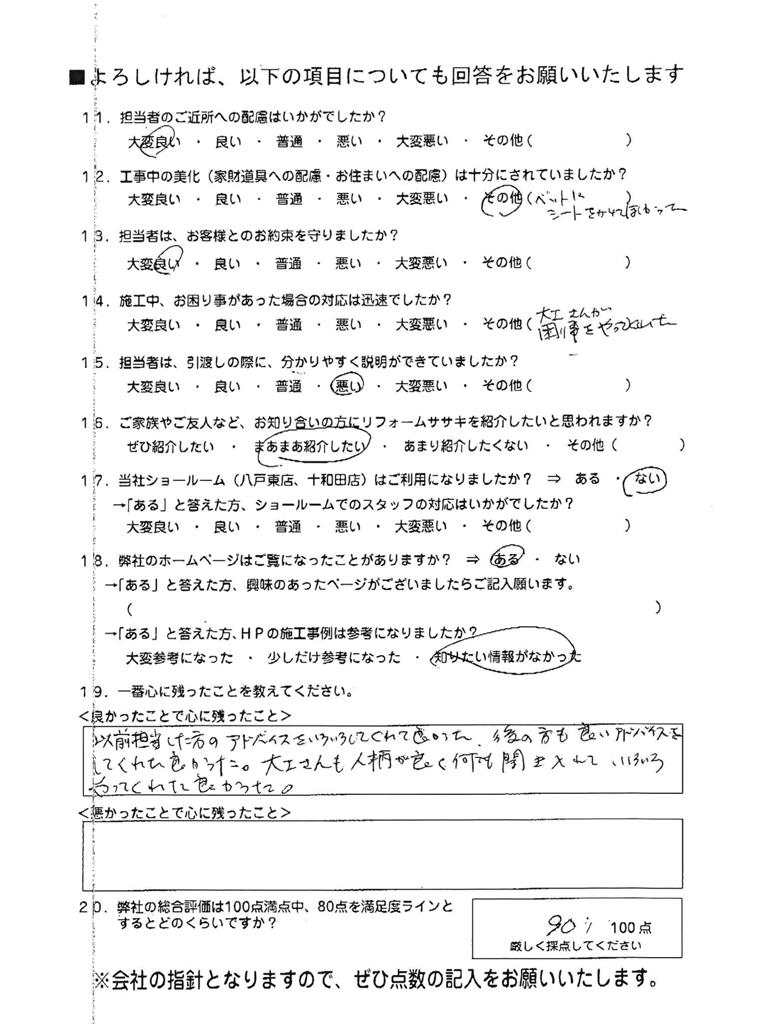 ■よろしければ、以下の項目についても回答をお願いいたします
１１．担当者のご近所への配慮はいかがでしたか？
大変良い ・ 良い ・ 普通 ・ 悪い ・ 大変悪い ・ その他（ ）
１２．工事中の美化（家財道具への配慮・お住まいへの配慮）は十分にされていましたか？
大変良い ・ 良い ・ 普通 ・ 悪い ・ 大変悪い ・ その他（ベットに ）
シートをかけてほしかった
１３．担当者は、お客様とのお約束を守りましたか？
大変良い ・ 良い ・ 普通 ・ 悪い ・ 大変悪い ・ その他（ ）
１４．施工中、お困り事があった場合の対応は迅速でしたか？
大工さんが
大変良い ・ 良い ・ 普通 ・ 悪い ・ 大変悪い ・ その他（ 困り事をやってくれた
１５．担当者は、引渡しの際に、分かりやすく説明ができていましたか？
大変良い ・ 良い ・ 普通 ・ 悪い ・ 大変悪い ・ その他（ ）
１６．ご家族やご友人など、お知り合いの方にリフォームササキを紹介したいと思われますか？
ぜひ紹介したい ・ まあまあ紹介したい ・ あまり紹介したくない ・ その他（ ）
１７．当社ショールーム（八戸東店、十和田店）はご利用になりましたか？ ⇒ ある ・ ない
→「ある」と答えた方、ショールームでのスタッフの対応はいかがでしたか？
大変良い ・ 良い ・ 普通 ・ 悪い ・ 大変悪い ・ その他（ ）
１８．弊社のホームページはご覧になったことがありますか？ ⇒ ある ・ ない
→「ある」と答えた方、興味のあったページがございましたらご記入願います。
（ ）
→「ある」と答えた方、ＨＰの施工事例は参考になりましたか？
大変参考になった ・ 少しだけ参考になった ・ 知りたい情報がなかった
１９．一番心に残ったことを教えてください。
＜良かったことで心に残ったこと＞
以前担当した方のアドバイスをいろいろしてくれて良かった、後の方も良いアドバイスを
してくれた良かった。大工さんも人柄が良く何でも聞き入れて、いろいろ
やってくれた良かった。
＜悪かったことで心に残ったこと＞
２０．弊社の総合評価は100点満点中、80点を満足度ラインと
するとどのくらいですか？
90 / 100点
厳しく採点してください
※会社の指針となりますので、ぜひ点数の記入をお願いいたします。